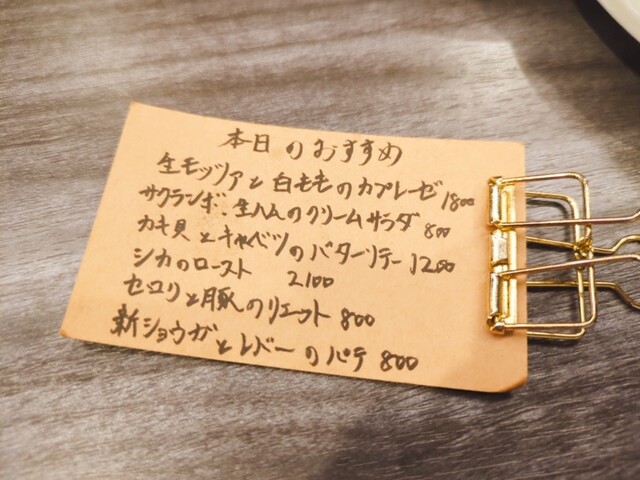 本日のおすすめ
生モッツァと白ももとのカプレーゼ 1800
サクランボ、生ハムのクリームサラダ 800
カキ貝とキャベツのバターソテー 1200
シカのロースト 2100
セロリと豚のリエット 800
新ショウガとレバーのパテ 800